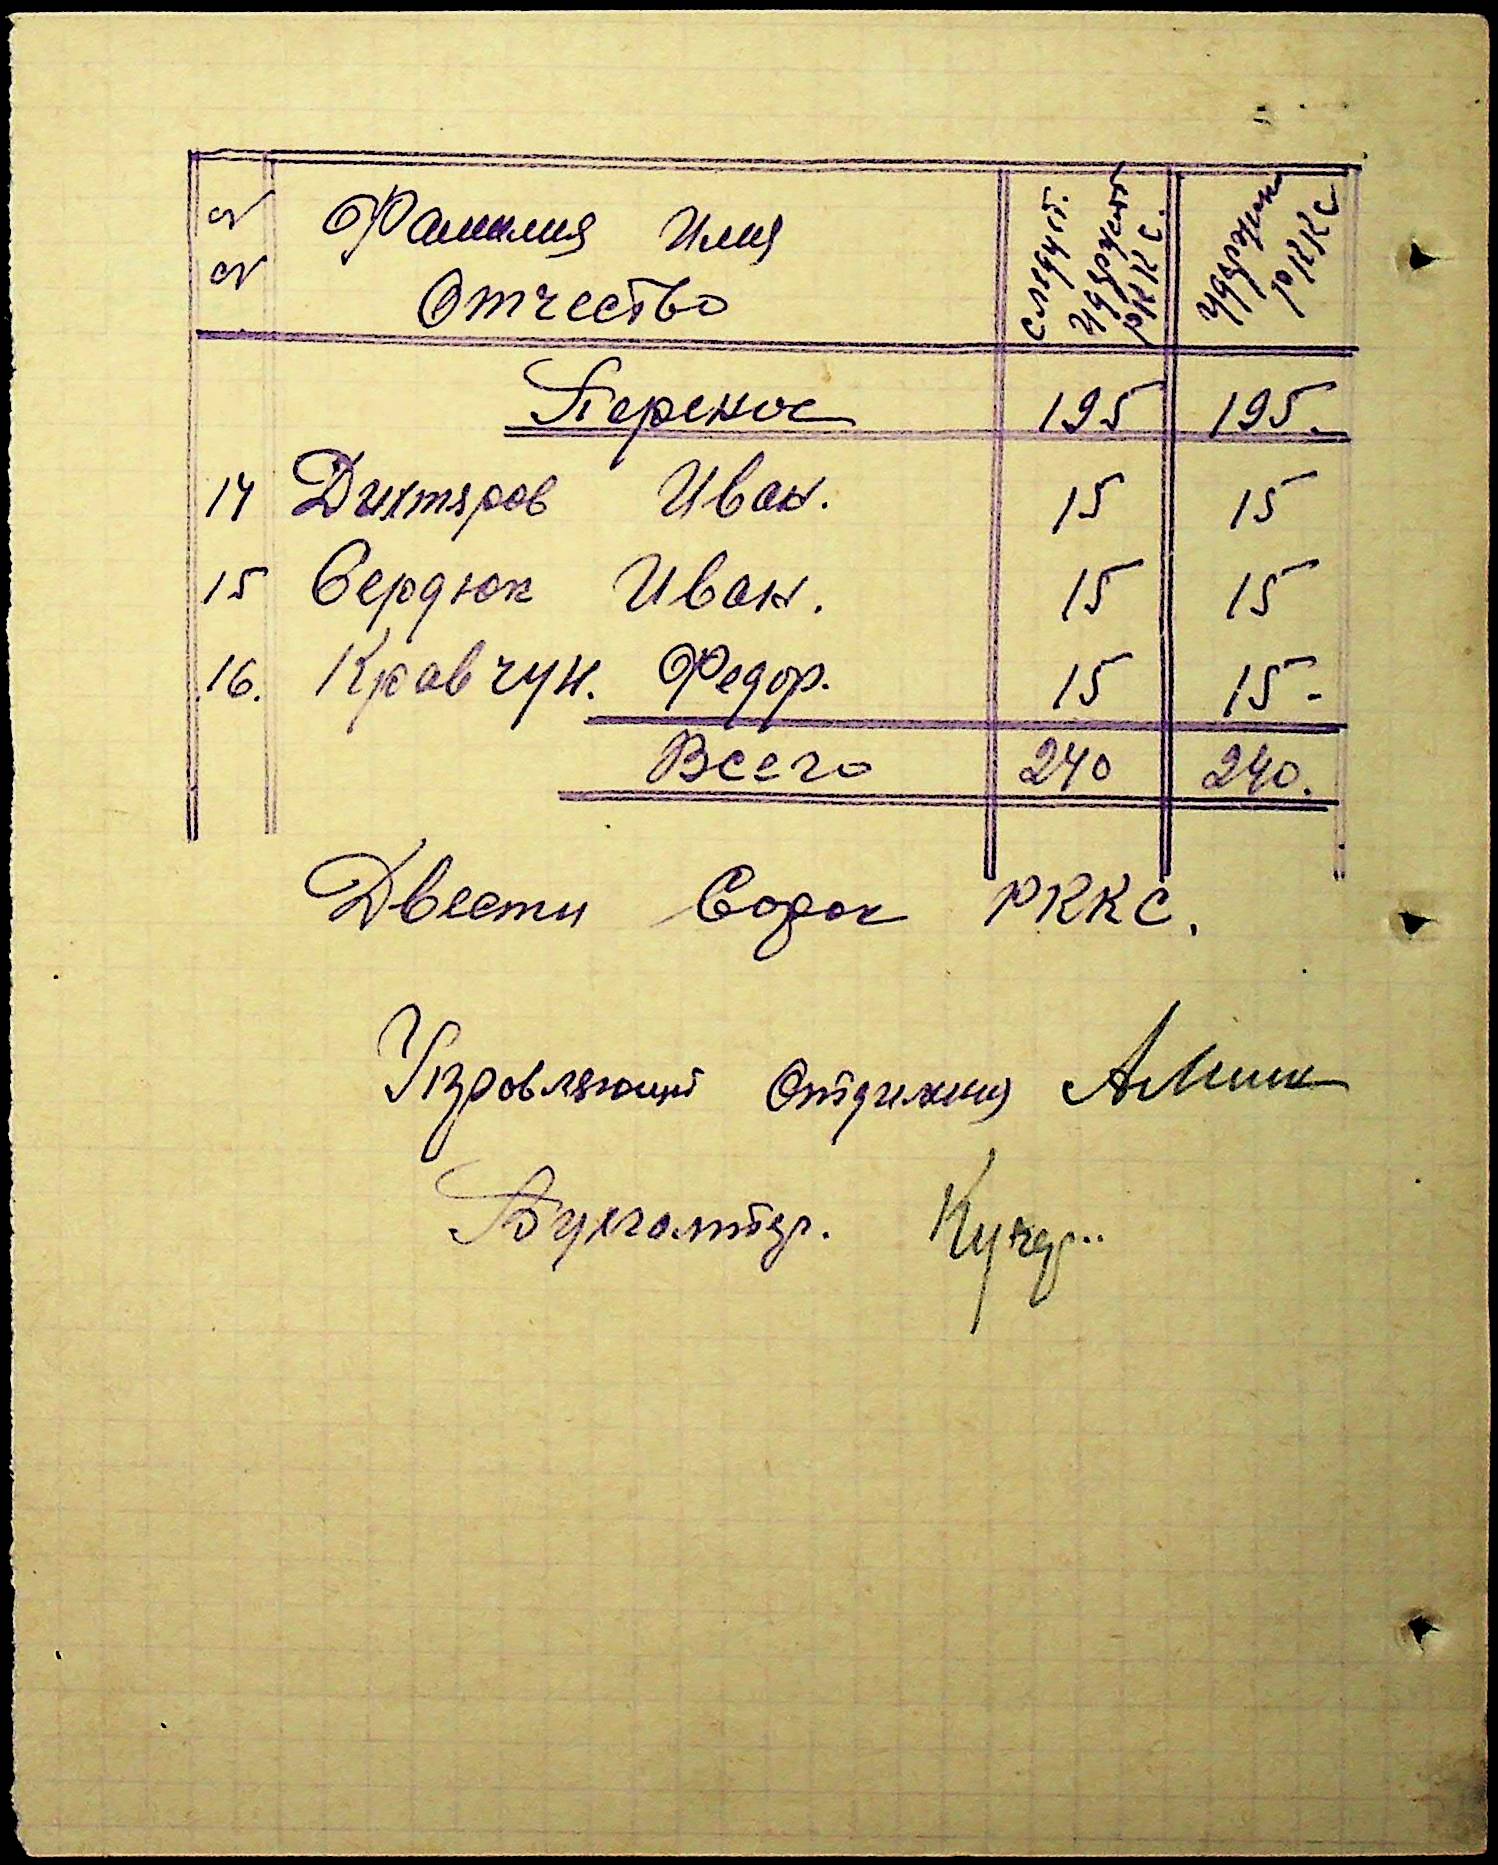 № Фамилия Имя
№ Отчество
следует.
удержат
РККС.
удержан
РККС
Перенос 195 195.
14 Дихтяров Иван. 15 15
15 Сердюк Иван. 15 15
16. Кравчун. Федор. 15 15-
Всего 240 240.
Двести Сорок РККС.
Управляющий
Бухгалтер.